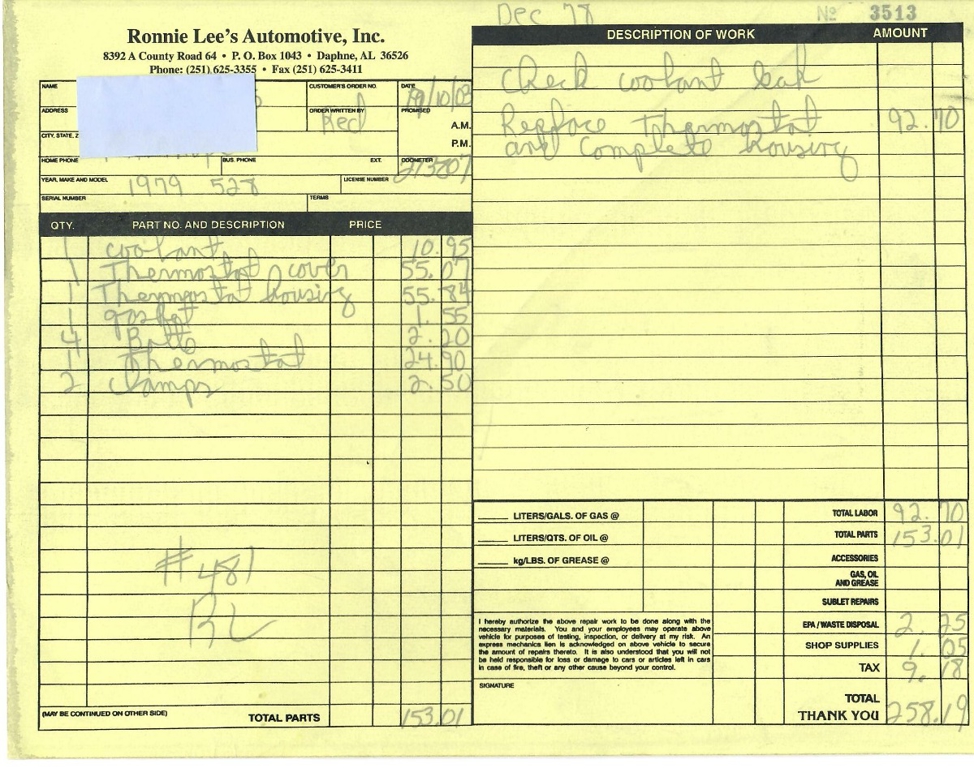 Dec 78
No 3513
Ronnie Lee's Automotive, Inc.
8392 A County Road 64 • P. O. Box 1043 • Daphne, AL 36526
Phone: (251) 625-3355 • Fax (251) 625-3411
NAME
CUSTOMER'S ORDER NO.
DATE
/10/03
ADDRESS
ORDER WRITTEN BY
Red
PROMISED
A.M.
P.M.
CITY, STATE, Z
HOME PHONE
BUS. PHONE
EXT.
ODOMETER
213207
YEAR, MAKE AND MODEL
1979 528
LICENSE NUMBER
SERIAL NUMBER
TERMS
QTY. PART NO. AND DESCRIPTION PRICE
1 coolant 10.95
1 Thermostat cover 55.07
1 Thermostat housing 55.84
1 gasket 1.55
4 Bolts 2.20
1 Thermostat 24.90
2 clamps 2.50
#481
RL
(MAY BE CONTINUED ON OTHER SIDE) TOTAL PARTS 153.01
DESCRIPTION OF WORK AMOUNT
Check coolant leak
Replace Thermostat 92.70
and Complete housing
LITERS/GALS. OF GAS @
LITERS/QTS. OF OIL @
kg/LBS. OF GREASE @
TOTAL LABOR 92.70
TOTAL PARTS 153.01
ACCESSORIES
GAS, OIL
AND GREASE
SUBLET REPAIRS
EPA / WASTE DISPOSAL 2.25
SHOP SUPPLIES 1.05
TAX 9.18
TOTAL
THANK YOU 258.19
I hereby authorize the above repair work to be done along with the
necessary materials. You and your employees may operate above
vehicle for purposes of testing, inspection, or delivery at my risk. An
express mechanics lien is acknowledged on above vehicle to secure
the amount of repairs thereto. It is also understood that you will not
be held responsible for loss or damage to cars or articles left in cars
in case of fire, theft or any other cause beyond your control.
SIGNATURE